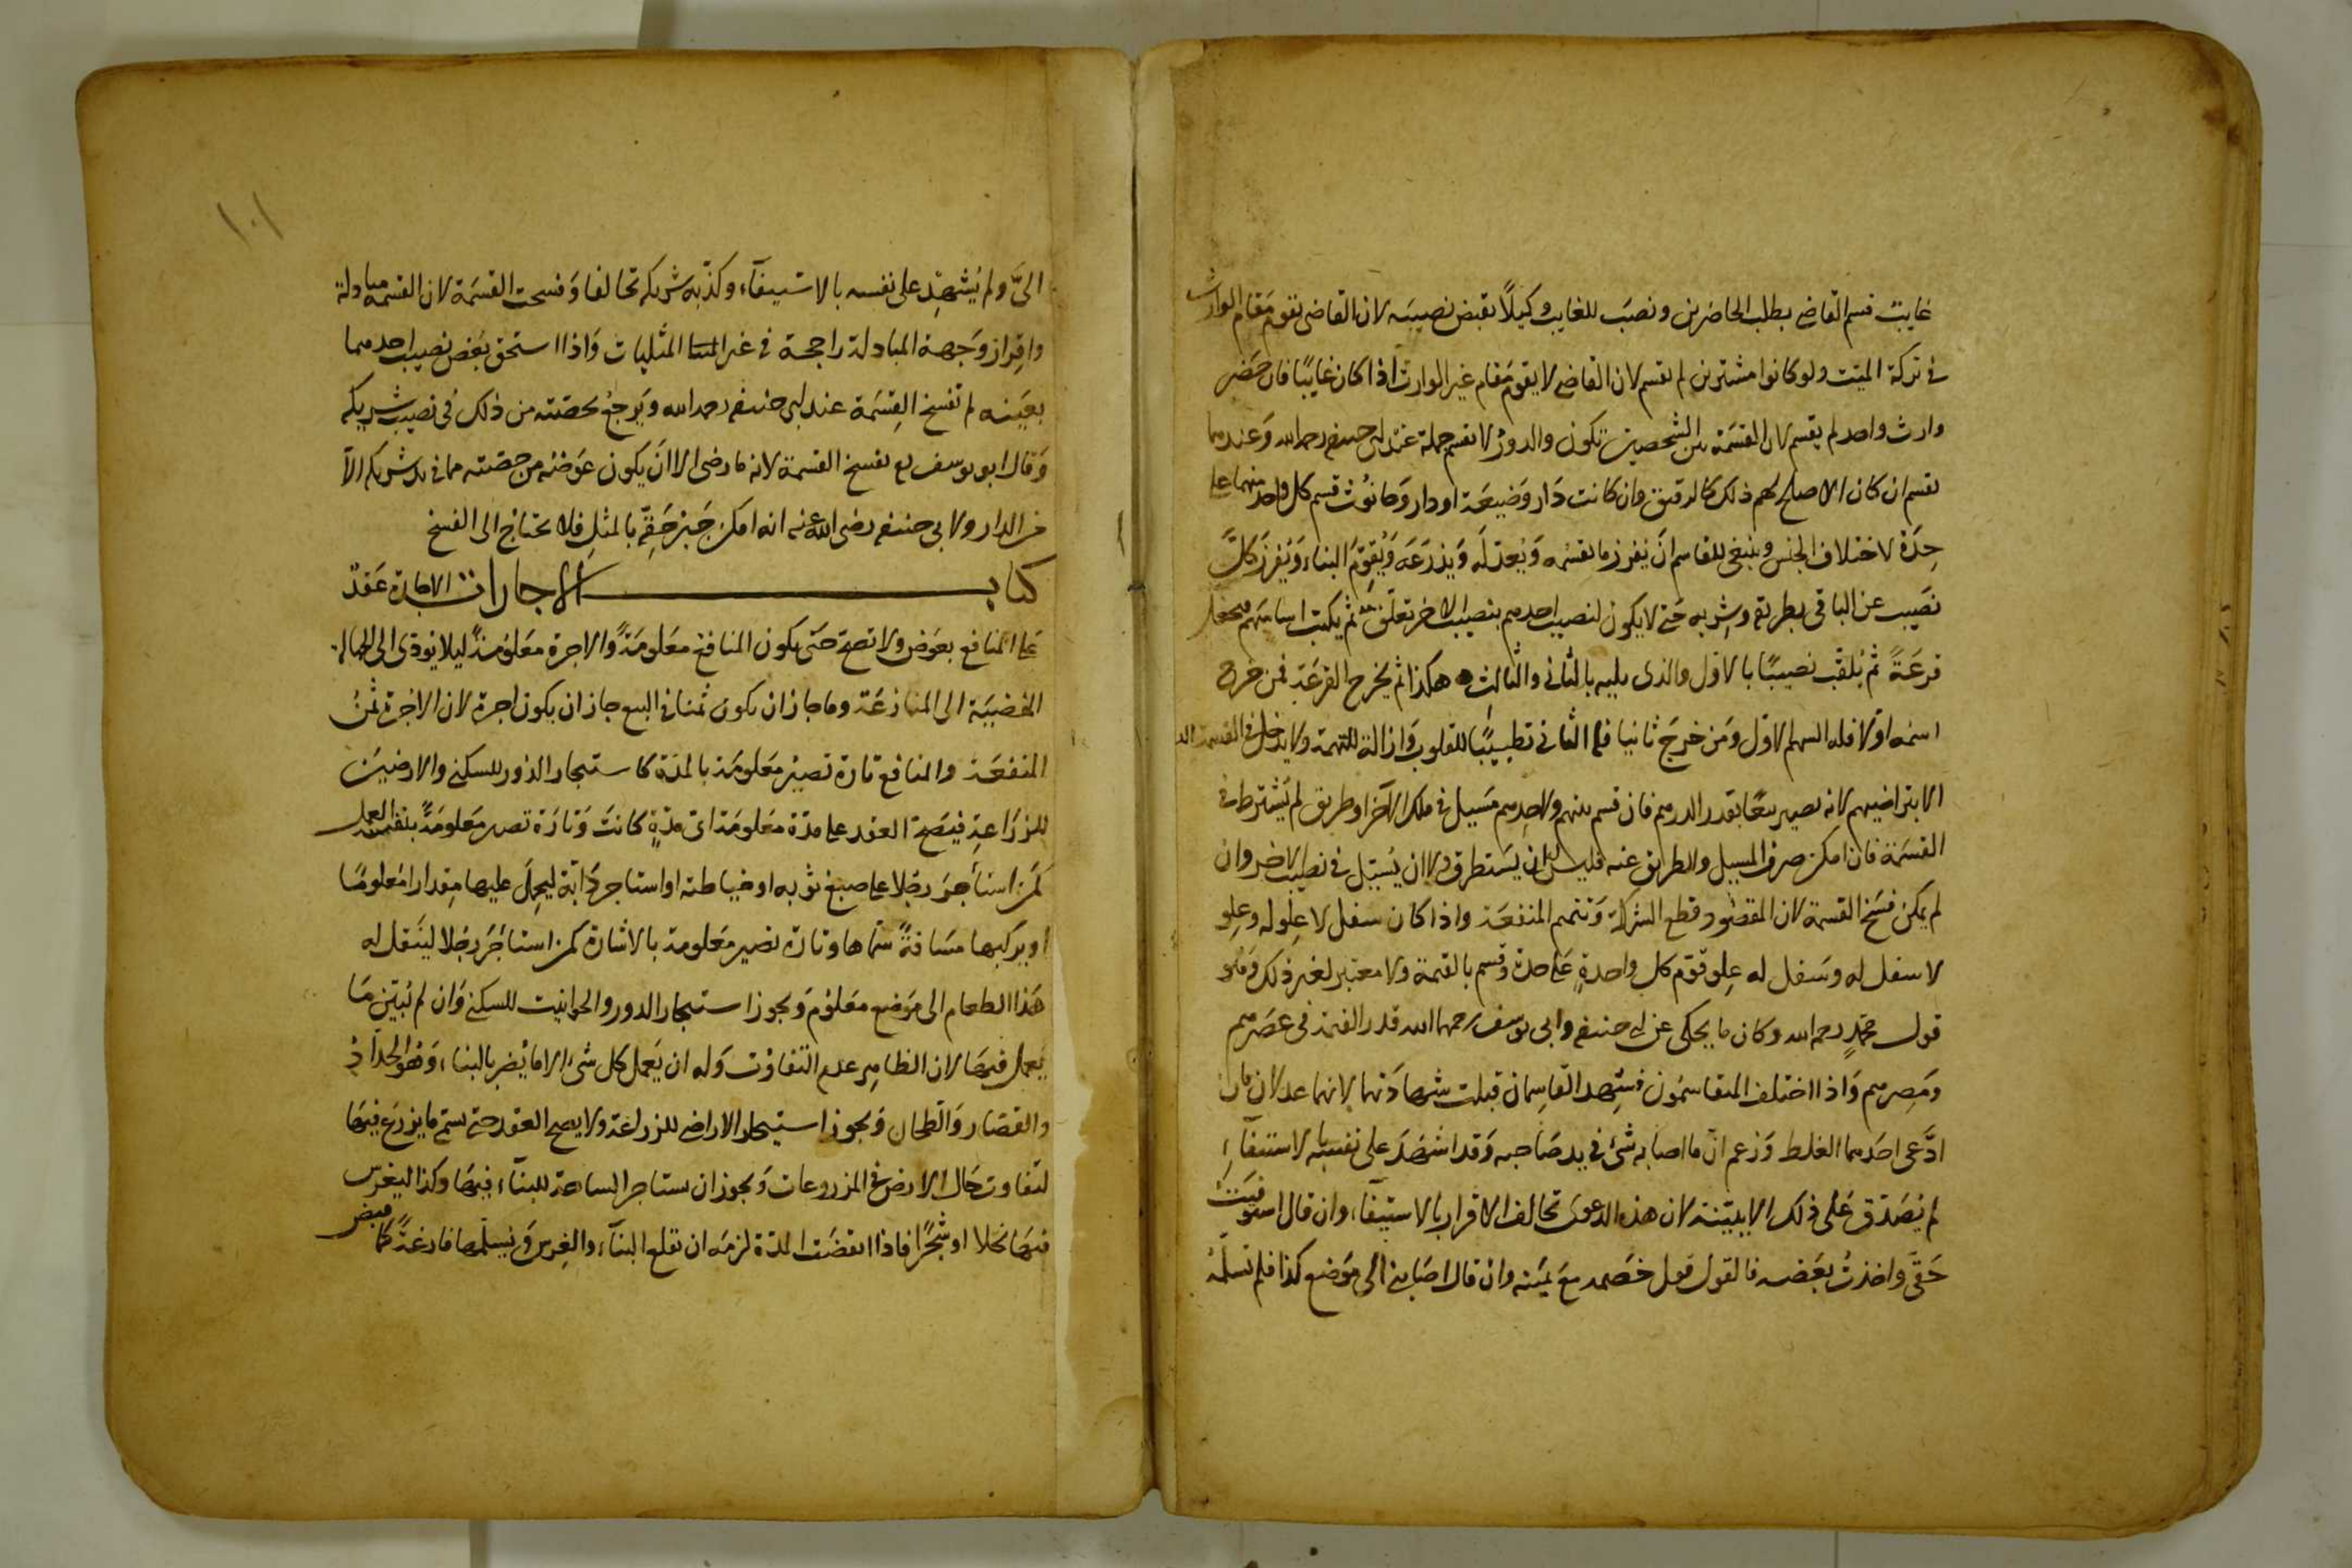 غايب قسم القاضي بطلب الحاضرين ونصَب للغايب وكيلًا يقبض نصيبَه لان القاضى يقوم مَقام الوارث
في تركة الميّت ولو كانوا مشترين لم يقسم لان القاضي لا يقوم مَقام غير الوارث اذا كان غايبًا فان حَضَر
وارث واحد لم يقسم لان القسمَة بين الشخصين تكون والدورُ لا تقسم جملة عند ابى حنيفه رحمه الله وَعندهما
يقسم ان كان الاصلح لهم ذلك كالرقيق وان كانت دَار وَضيعَة او دار وَحانوُت قسم كل واحد منهما على
حِدَة لاختلاف الجنس وينبغى للقاسم انَ يفرز ما يقسمُه وَيُعدّلَه وَيذرَعَه وَيُقوِّمَ البناء وَيُفرزَ كلَّ
نصَيب عن الباقى بطريقه وشِربه حَتى لا يكون لنصيب احدهم بنصيب الاخر تعلّق ثم يكتب اساميَهم ويجعل
قرعَةً ثم يُلقّب نصيبًا بالاوّل والذى يليه بالثانى والثالث هكذا ثم يخرج القرعَة فمن خرج
اسمُه اوّلا فله السهم الاوّل وَمَن خرجَ ثانيا فله الثانى تطييبًا للقلوب وَازالة للتهمة ولا يدخل في القسمة الد
الا بتراضيهم لانه يصير بيعًا بقدر الدرهم فان قسم بينهم ولاحدهم مَسيل في ملك الآخر او طريق لم يُشترط في
القسمَة فان امكن صرف المسيل والطريق عنه فليس له ان يستطرق ولا ان يُسيّل في نصيب الاخر وان
لم يمكن فسَخ القسمة لان المقصُود قطع الشركة وَتتميم المنفعَة واذا كان سفل لا عِلوَ له وعلو
لا سفل له وسَفل له عِلو قوّم كل واحدةٍ عَلى حدة وقسم بالقيمة ولا معتبر لغير ذلك وَهُو
قول محمّدٍ رحمه الله وكان ما يحكى عن ابى حنيفه وابى يوسف رحمهما الله قدر القيمة فى عصَرهم
ومَصِرهم وَاذا اختلف المتقاسمُون فشهد القاسِمان قبلت شهادَتهما لانهما عدلان فان
ادَّعى احَدهما الغلط وَزعم انّ ما اصابه شئ في يد صَاحبه وَقد اشهَدَ على نفسه بالاستيفآءِ
لم يُصَدّق عَلى ذلك الا ببيّنة لان هذه الدعوى تخالف الاقرار بالاستيفآء وان قال استوفيَتُ
حَقّى واخذتُ بعَضه فالقول قول خَصمه معَ يَمينه وان قال اصَابنى الى مَوضع كذا فلم تسلّمهُ
١٠١
الىَّ ولم يُشهِد على نفسه بالاستيفآء وكذّبه شريكه تحالفا وَفسخت القسَمة لان القسمة مبادلة
وافراز وَجهة المبادلة راجحة في غير المثليات وَاذا استحق بعَض نصيب احدهما
بعَينه لم تفسخ القِسَمة عند ابى حنيفه رحمه الله وَيرجعُ بحصّته من ذلك فى نصيب شريكه
وَقال ابو يوسف تفسخ القسمة لانه ما رضى الا انَ يكون عوَضُه من حصّته مما في يد شريكه الا
من الدار ولابى حنيفه رضى الله عنه انه امكن جَبر حَقِّه بالمثل فلا يحتاج الى الفسخ
كتاب الاجارات الاجارة عَقدٌ
على المنافع بعوَض ولا تصحّ حَتى يكون المنافع معَلومَةً والاجرة معَلومَة ليلا يؤدى الى الجهالة
المفضيَة الى المنازعَة وما جاز ان يكون ثمنا في البيع جاز ان يكون اجرة لان الاجرة ثمنُ
المنفعَة والمنافع تارة تصيرُ معَلومَة بالمدّة كاستيجار الدّور للسكنى والارضينَ
للزرَاعةِ فيَصحّ العقد على مدّة معَلومَة اىّ مدّةٍ كانتَ وَتارَة تصير معَلومَةً بنفسه العمل
كمن استأجَر رجُلا على صبغ ثوَبه او خياطته او استاجر دَابة ليحِملَ عليها مِقدارا مَعلومًا
او يركبها مسَافةً سمّاها وتارة تصير معَلومة بالاشارة كمن استاجَر رجُلا لينَقل له
هَذا الطعام الى مَوضع معَلوُم وَيجوز استيجار الدور والحوانيت للسكنى وَان لم يُبيّن مَا
يَعمل فيهَا لان الظاهِر عدم التفاوُت وَله ان يَعمل كل شئ الا ما يُضر بالبناء وَهُو الحدّاد
والقصّار وَالطحان وَيجوز استيجار الاراضي للزراعَة ولا يصح العقد حتى يسمّ ما يزرَع فيهَا
لتفاوت حَال الارض في المزروعات وَيجوز ان يستاجر الساحة للبنآء فيهَا وكذا ليغرس
فيهَا نخلا او شجَرًا فاذا انقضَت المدّة لزمَه ان يقلع البنآء والغِرس وَيسَلّمها فارغةً كما قبض